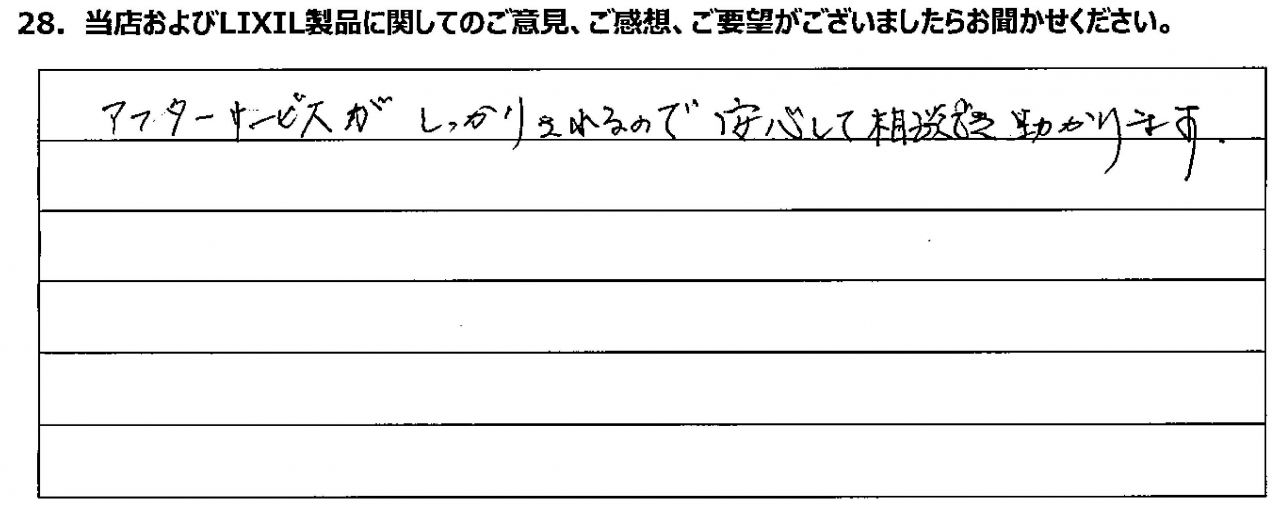 28. 当店およびLIXIL製品に関してのご意見、ご感想、ご要望がございましたらお聞かせください。
アフターサービスがしっかりされるので安心して相談でき助かります.